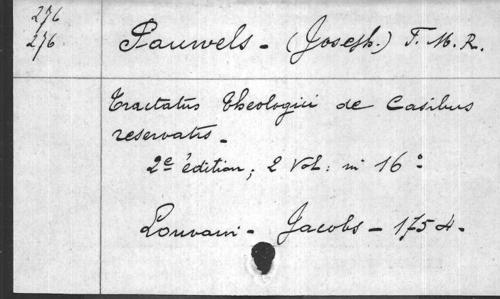 276
276
Pauwels - (Joseph.) F. M. R.
Tractatus Theologici de Casibus
reservatis -
2e édition; 2 Vol: in 16°
Louvain - Jacobs - 1754.